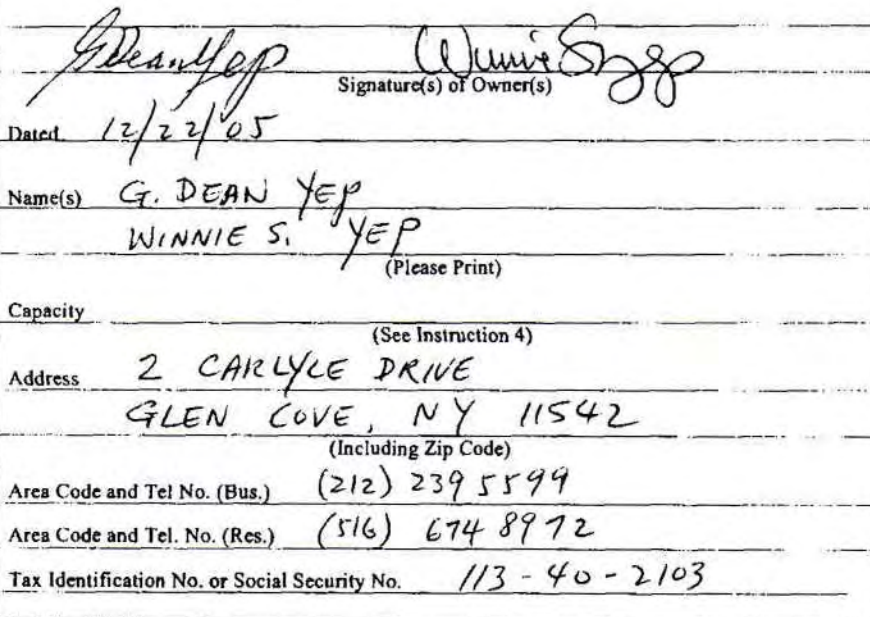 G Dean Yep Winnie S Yep
Signature(s) of Owner(s)
Dated 12/22/05
Name(s) G. DEAN YEP
WINNIE S. YEP
(Please Print)
Capacity
(See Instruction 4)
Address 2 CARLYLE DRIVE
GLEN COVE, NY 11542
(Including Zip Code)
Area Code and Tel No. (Bus.) (212) 239 5599
Area Code and Tel. No. (Res.) (516) 674 8972
Tax Identification No. or Social Security No. 113-40-2103